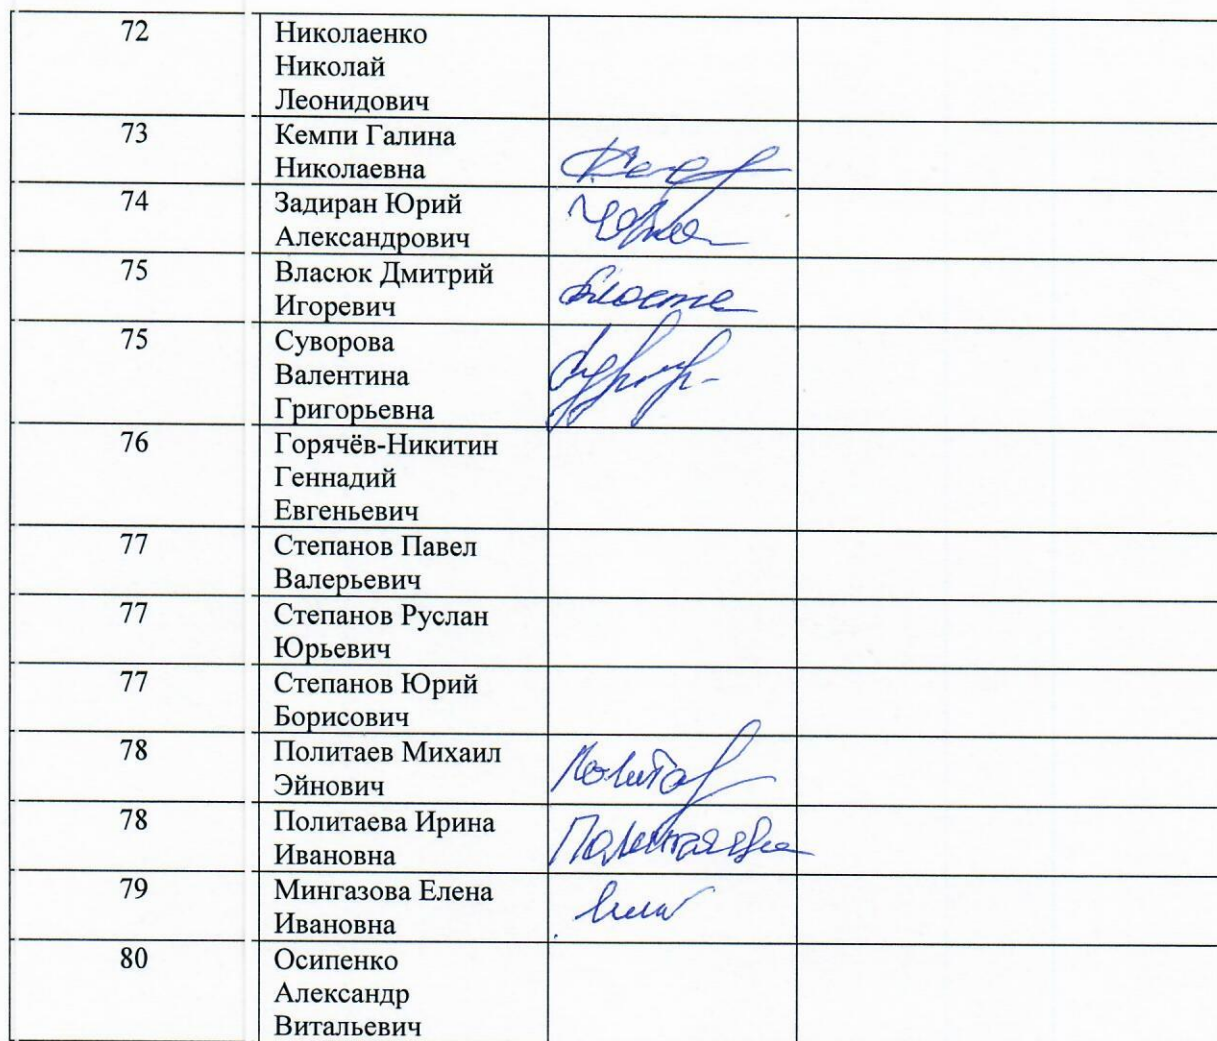 72 Николаенко
Николай
Леонидович
73 Кемпи Галина
Николаевна
74 Задиран Юрий
Александрович
75 Власюк Дмитрий
Игоревич
75 Суворова
Валентина
Григорьевна
76 Горячёв-Никитин
Геннадий
Евгеньевич
77 Степанов Павел
Валерьевич
77 Степанов Руслан
Юрьевич
77 Степанов Юрий
Борисович
78 Политаев Михаил
Эйнович
78 Политаева Ирина
Ивановна
79 Мингазова Елена
Ивановна
80 Осипенко
Александр
Витальевич